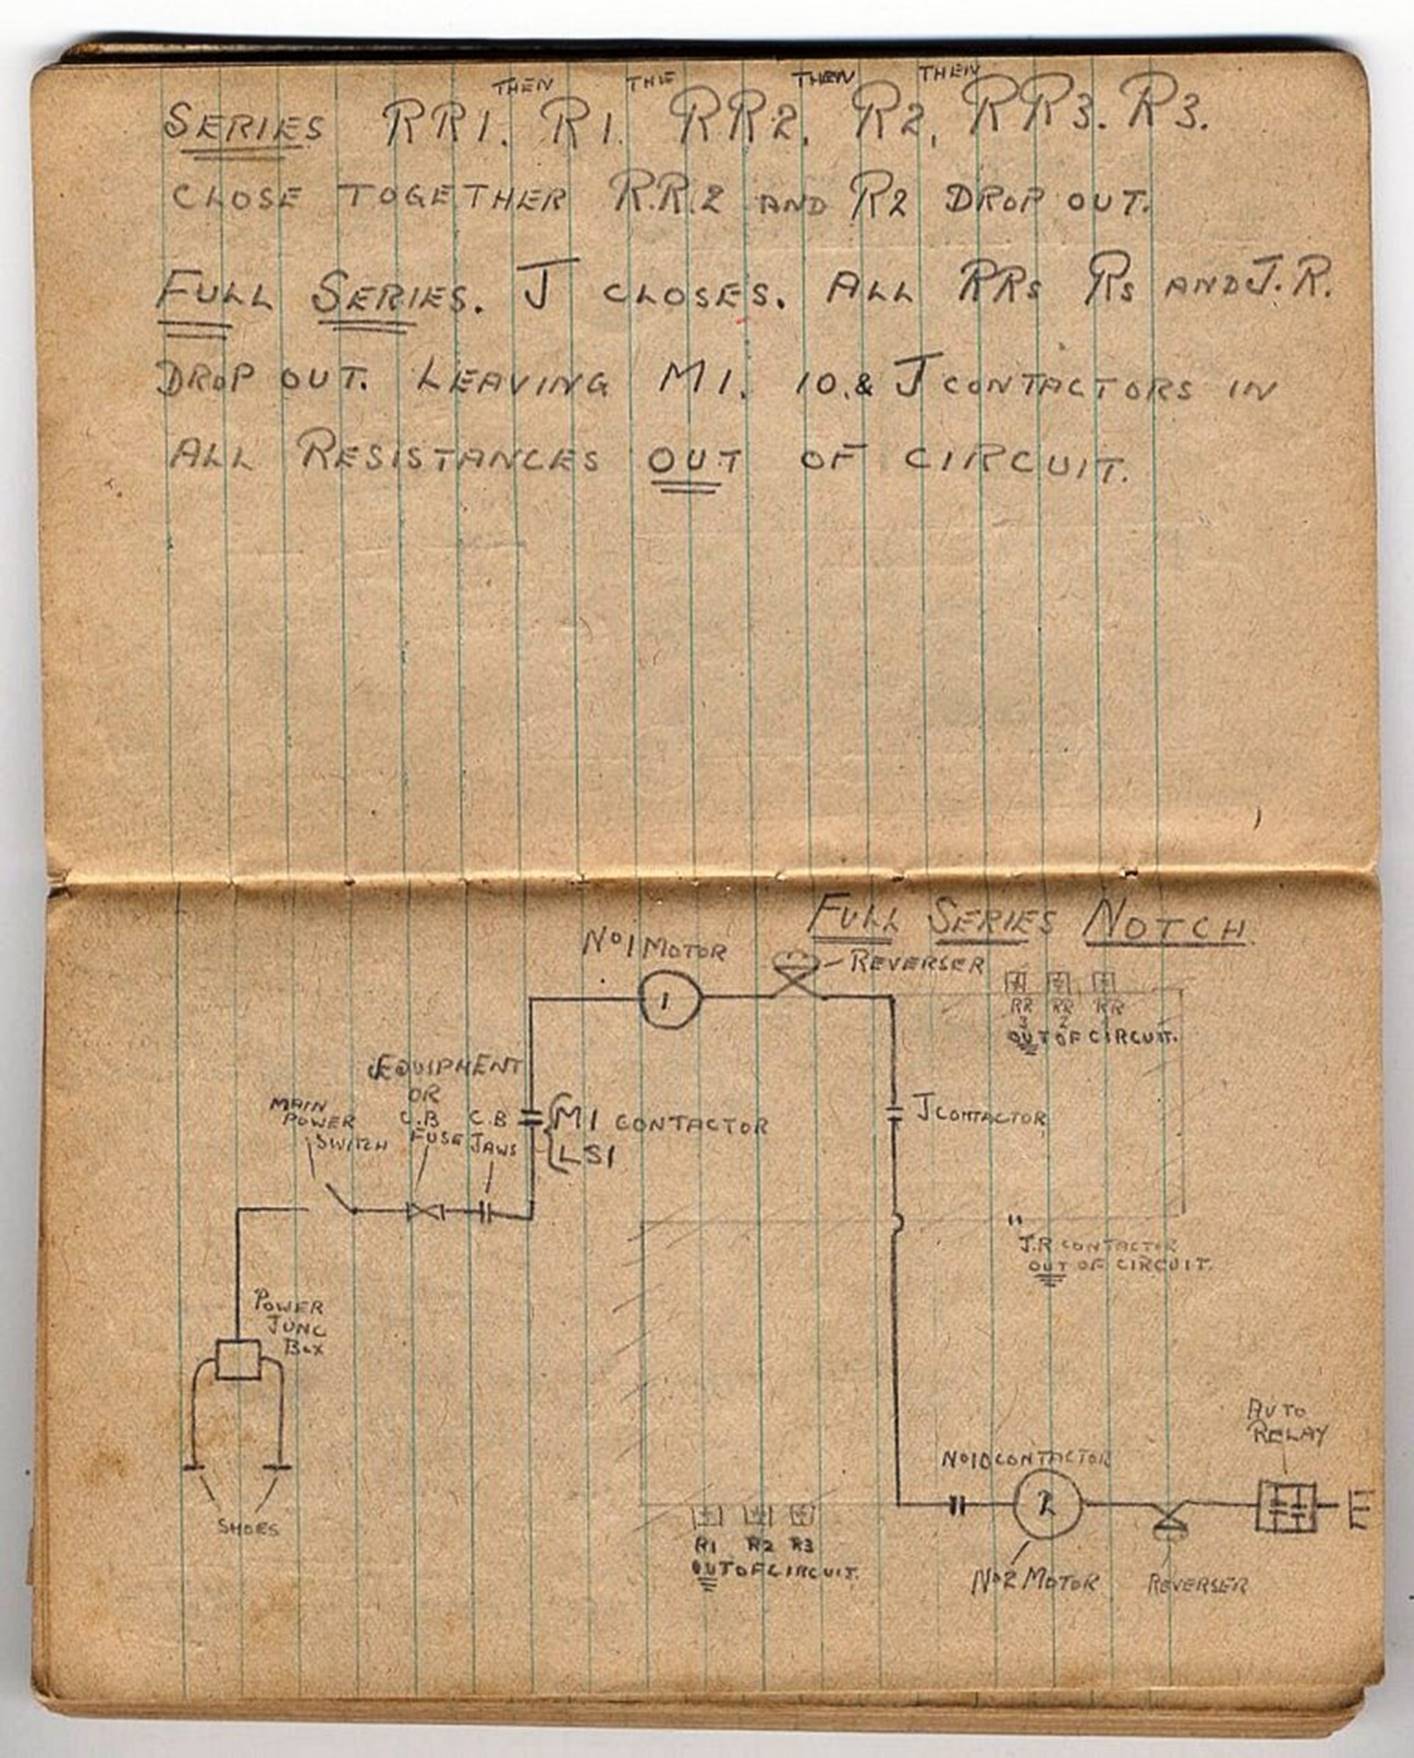 THEN THE THEN THEN
SERIES RR1. R1. RR2. R2, RR3. R3.
CLOSE TOGETHER R.R.2 AND R2 DROP OUT.
FULL SERIES. J CLOSES. ALL RRs Rs AND J.R.
DROP OUT. LEAVING M1. 10.& J CONTACTORS IN
ALL RESISTANCES OUT OF CIRCUIT.
FULL SERIES NOTCH
No1 MOTOR
REVERSER
1
RR RR RR
3 2
OUT OF CIRCUIT.
EQUIPMENT
OR
C.B C.B
FUSE JAWS
MAIN
POWER
SWITCH
M1 CONTACTOR
LS1
J CONTACTOR
J.R CONTACTOR
OUT OF CIRCUIT.
POWER
JUNC
BOX
SHOES
AUTO
RELAY
No10 CONTACTOR
2
E
R1 R2 R3
OUT OF CIRCUIT.
No2 MOTOR
REVERSER